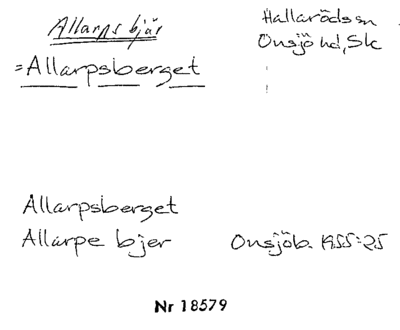 Allarps bjär
=Allarpsberget
Hallarödssn
Onsjö hd, Sk
Allarpsberget
Allarpe bjer Onsjöb. 1955:25
Nr 18579